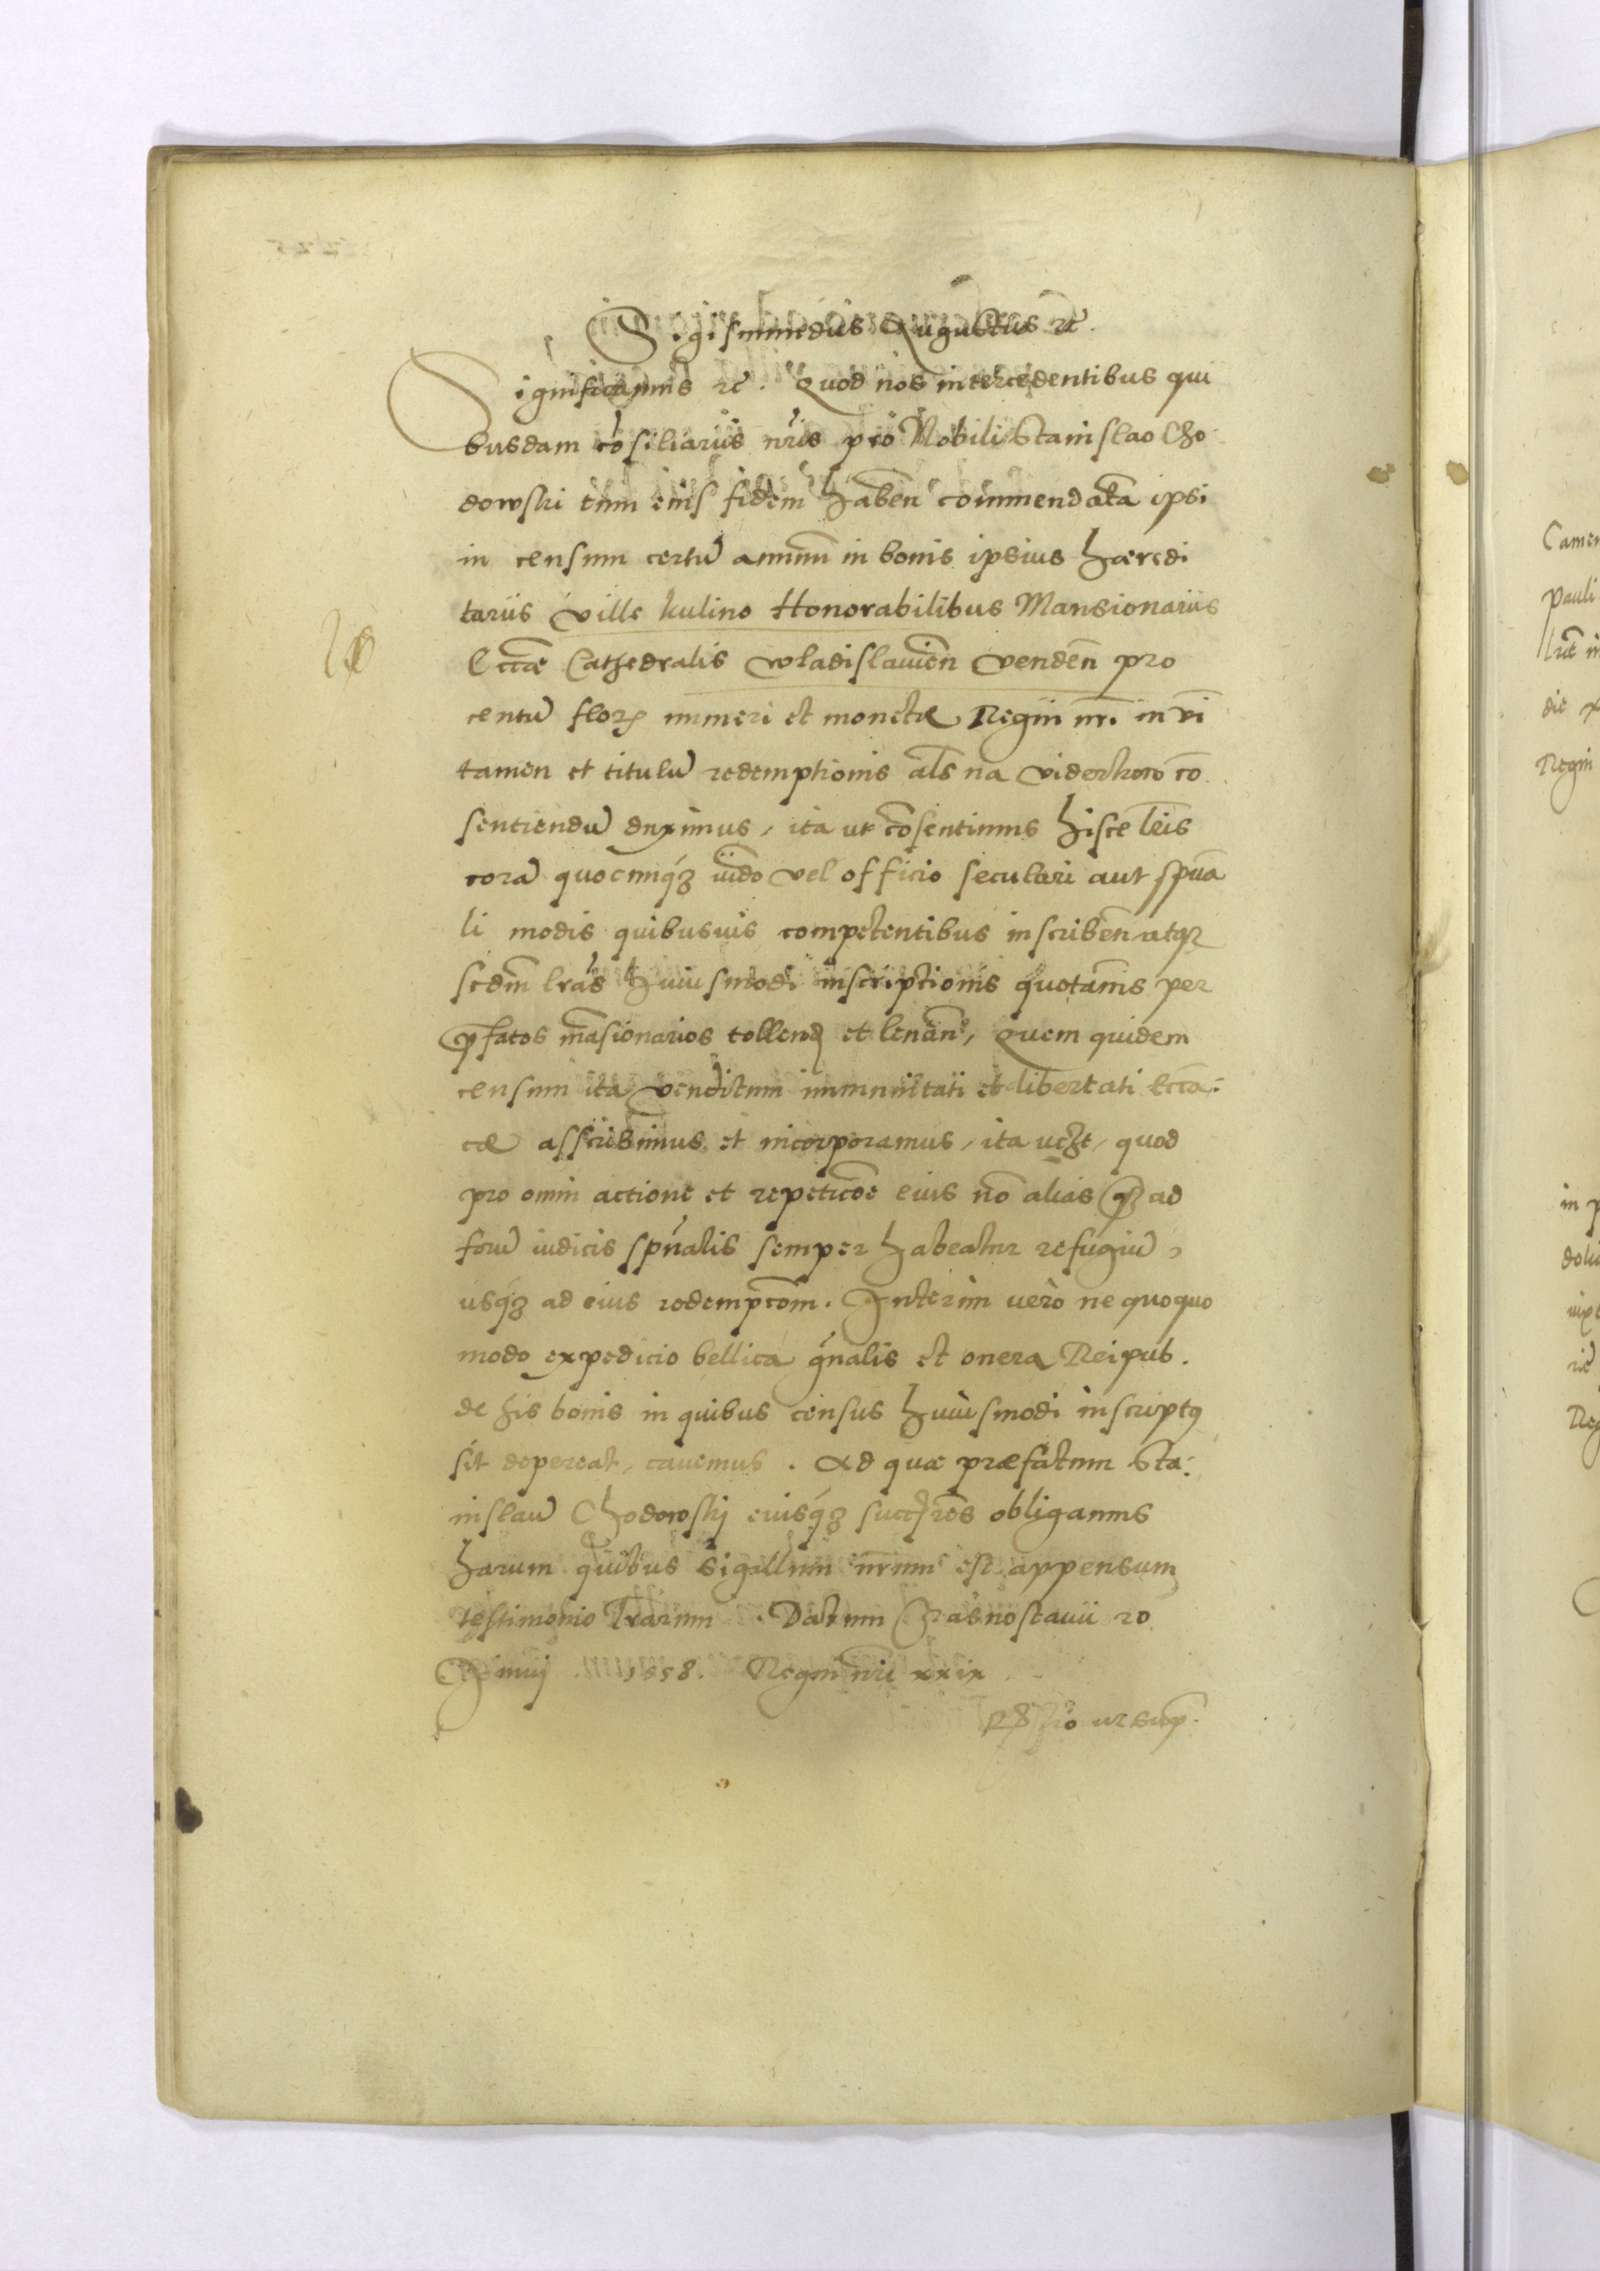 Sigismundus Augustus etc.
Significamus etc. Quod nos intercedentibus qui
busdam cōsiliariis nris pro Nobili Stanislao Cho
dowski tum eius fidem haben commendatā ipsi
in censum certū annuum in bonis ipsius hæredi
tariis ville Kulino Honorabilibus Mansionariis
Eccæ Cathedralis Wladislavien̄ venden̄ pro
centū flor numeri et monetæ Regni nr̄i in vi
tamen et titulū redemptionis al̄s na viderkow cō
sentiendū duximus, ita ut cōsentimus hisce lr̄is
corā quocunqȝ iudō vel officio seculari aut spūa
li modis quibusvis competentibus inscriben̄ atqȝ
scdm̄ lrās huiusmodi inscriptionis quotannis per
p̄fatos māsionarios tollend et levan̄, Quem quidem
censum ita venditum immunitati et libertati ecc̄a:
cæ asscribimus et incorporamus, ita vczt, quod
pro omni actione et repeticōe eius nō alias qȝ ad
forū iudicis spūalis semper habeatur refugiū,
usqȝ ad eius redempcōm. Interim vero ne quoquo
modo expedicio bellica gn̄alis et onera Reipub.
de his bonis in quibus census huiusmodi inscriptꝰ
sit depereat, cavemus. Ad quæ præfatum Sta:
nislaū Chodowskj eiusqȝ succr̄es obligamus
harum quibus sigillum nrum est appensum
testimonio lrarum. Datum Crasnostavii 20
1558. Regni nri xxix
ut sup̄.
Camen
pauli
die x
Regni
in p